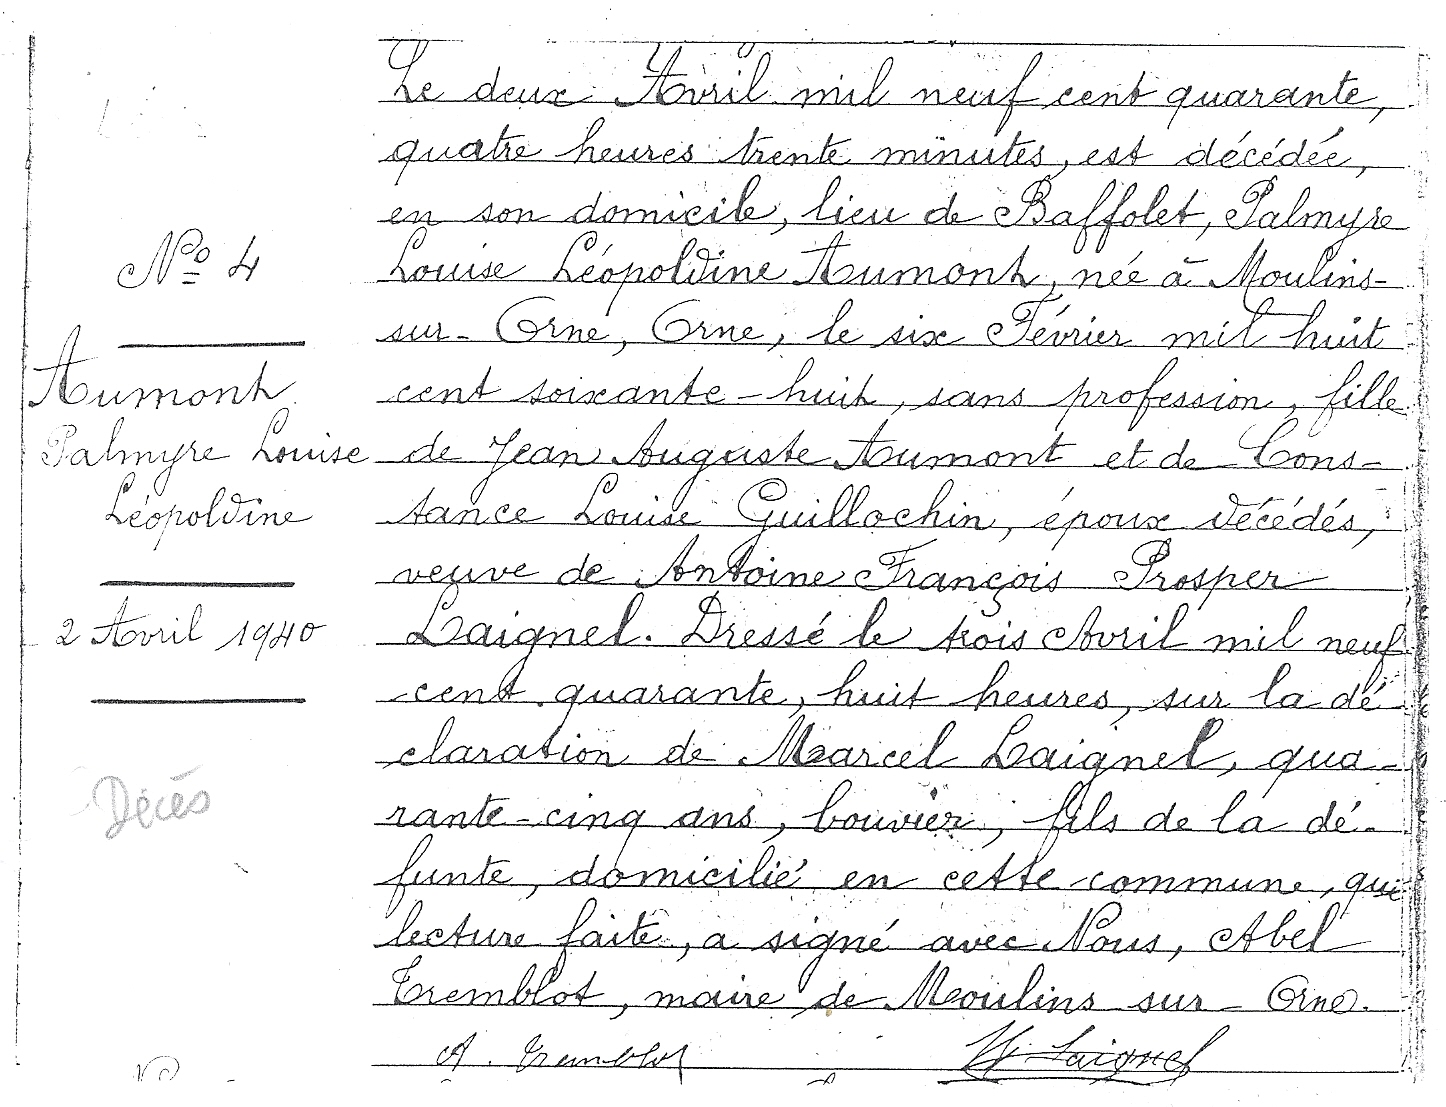 Nº 4
Aumont
Palmyre Louise
Léopoldine
2 Avril 1940
Décès
Le deux Avril mil neuf cent quarante,
quatre heures trente minutes, est décédée,
en son domicile, lieu de Baffolet, Palmyre
Louise Léopoldine Aumont, née à Moulins-
sur-Orne, Orne, le six Février mil huit
cent soixante-huit, sans profession, fille
de Jean Auguste Aumont et de Cons-
tance Louise Guillochin, époux décédés,
veuve de Antoine François Prosper
Laignel. Dressé le trois Avril mil neuf
cent quarante, huit heures, sur la dé
claration de Marcel Laignel, qua-
rante-cinq ans, bouvier, fils de la dé-
funte, domicilié en cette commune, qui
lecture faite, a signé avec Nous, Abel
Tremblot, maire de Moulins sur-Orne.
A. Tremblot Laignel